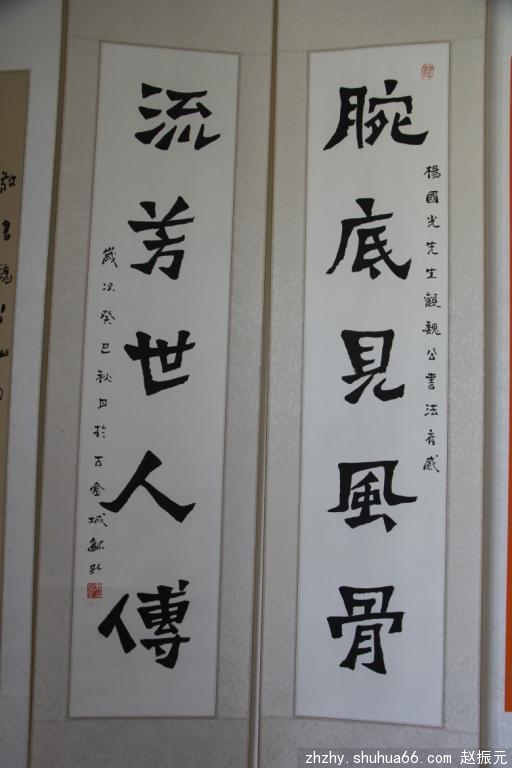 腕底見風骨
楊國光先生觀魏公書法有感
流芳世人傳
歲次癸巳秋日於古金城
敬書魏公
zhzhy.shuhua66.com 赵振元